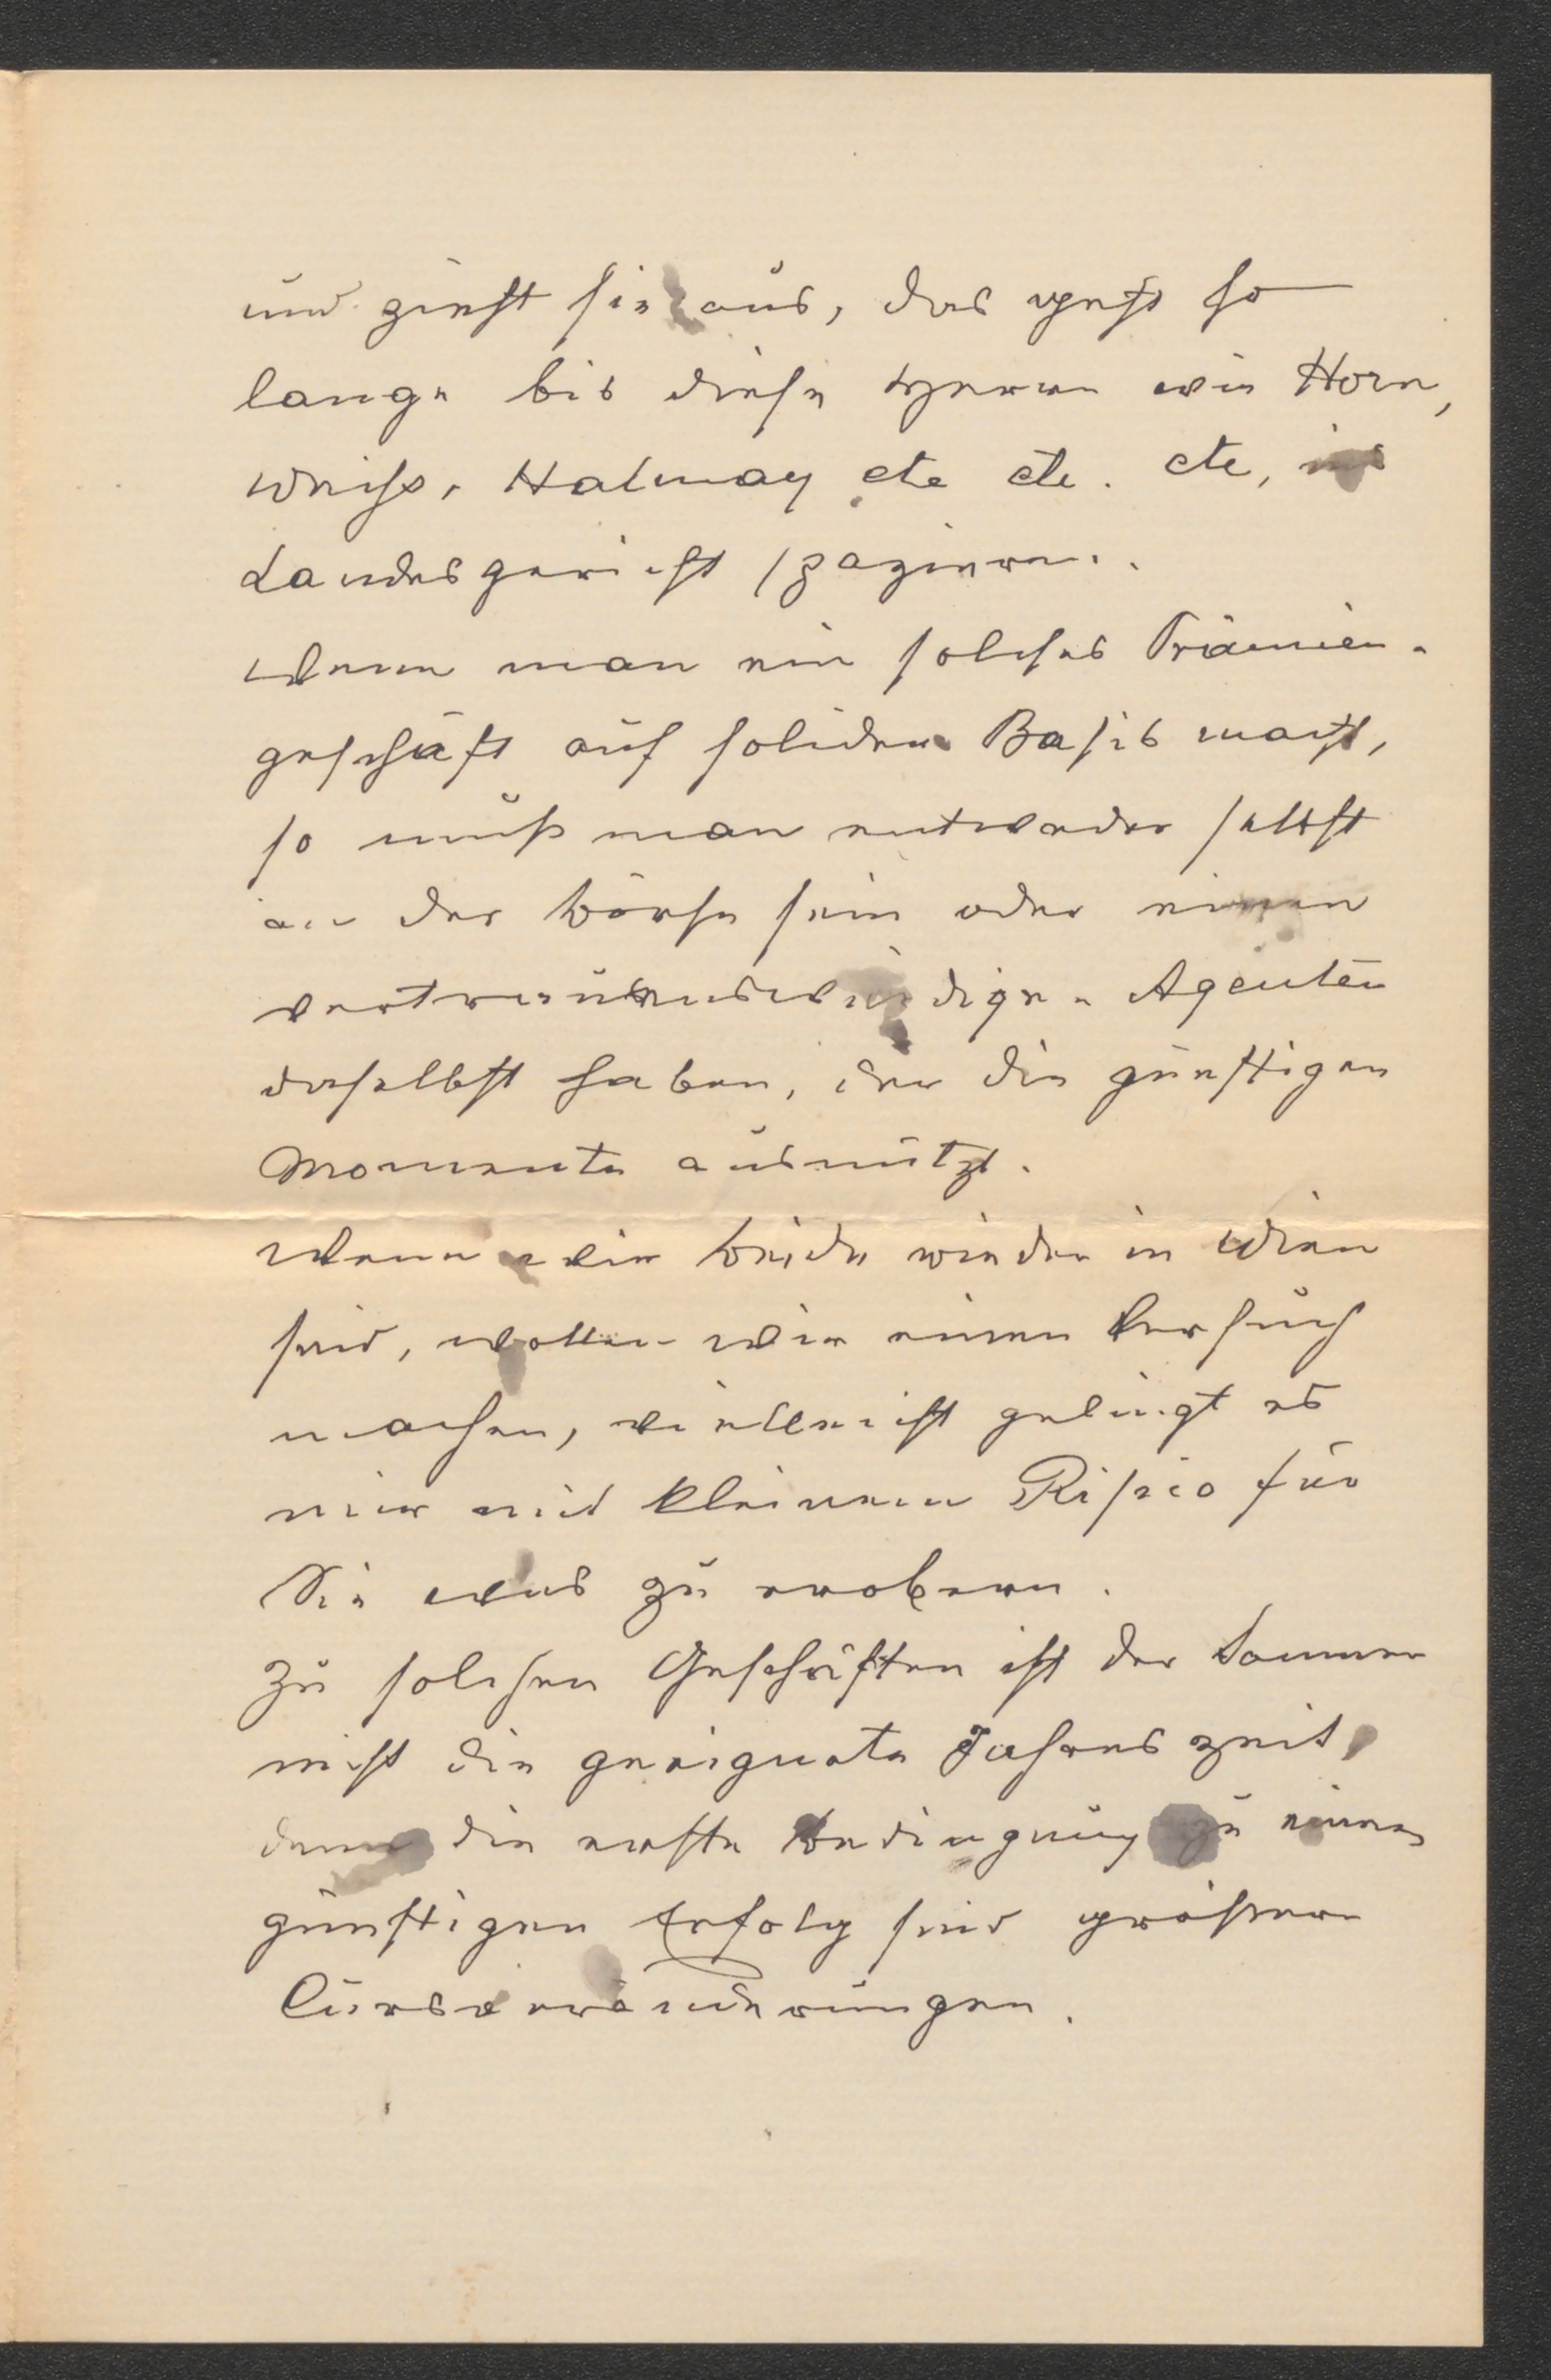 und zieht sie aus, das geht so
lange bis diese Herren wie Horn,
Weiss, Halmay etc etc. etc, ins
Landesgericht spazieren.
Wenn man ein solches Prämien-
geschäft auf solider Basis macht,
so muß man entweder selbst
an der Börse sein oder einen
vertrauenswürdigen Agenten
daselbst haben, der die günstigen
Momente ausnützt.
Wenn wir beide wieder in Wien
sind, wollen wir einen Versuch
machen, vielleicht gelingt es
mir mit kleinem Risico für
Sie was zu erobern.
Zu solchen Geschäften ist der Sommer
nicht die geeignete Jahreszeit,
denn die erste Bedingung zu einem
günstigen Erfolg sind größere
Cursveränderungen.